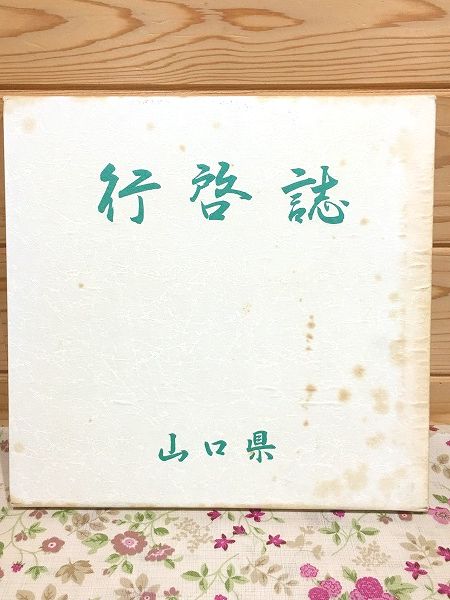 行啓誌
山口県